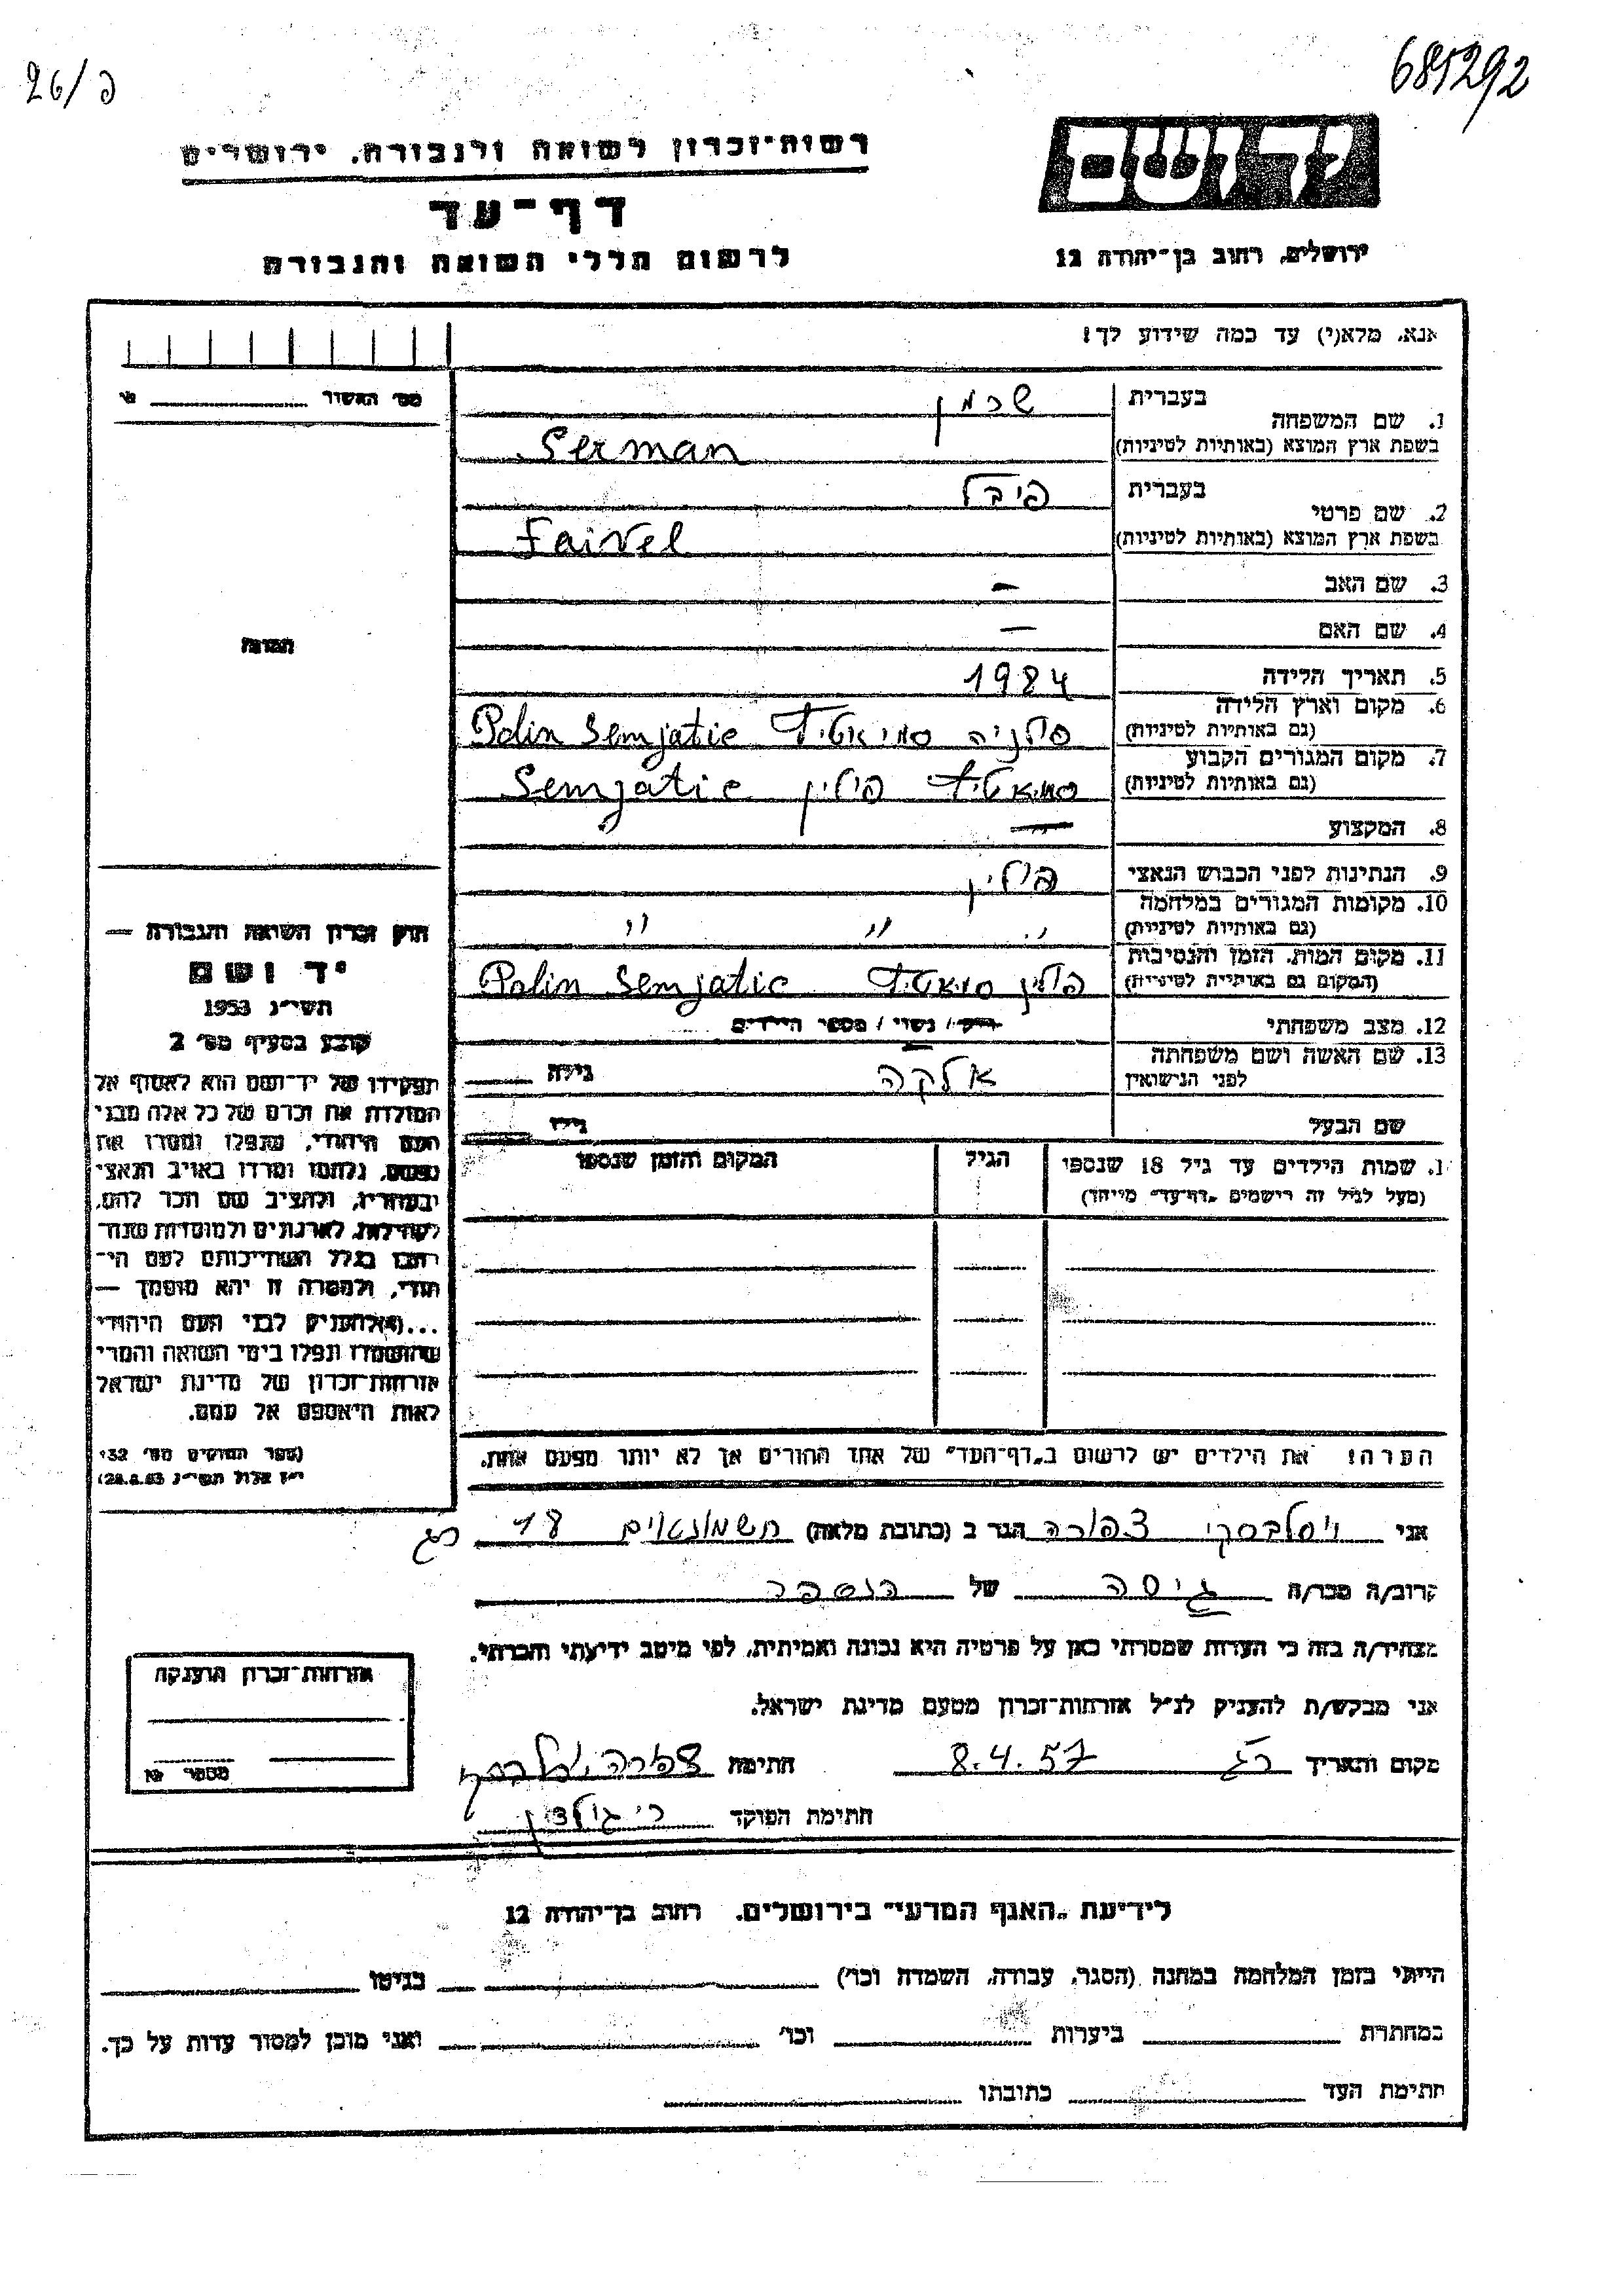 26/ב
685292
רשות־זכרון לשואה ולגבורה, ירושלים
דף־עד
לרשום חללי השואה והגבורה
יד ושם
ירושלים, רחוב בן־יהודה 12
אנא, מלא(י) עד כמה שידוע לך!
מס׳ האשור
1. שם המשפחה
בעברית שרמן
בשפת ארץ המוצא (באותיות לטיניות) Serman
2. שם פרטי
בעברית פיבל
בשפת ארץ המוצא (באותיות לטיניות) Faivel
3. שם האב —
4. שם האם —
5. תאריך הלידה 1984
6. מקום וארץ הלידה
(גם באותיות לטיניות) Polin Semjatic
7. מקום המגורים הקבוע
(גם באותיות לטיניות) פולין Semjatic
8. המקצוע
9. הנתינות לפני הכבוש הנאצי פולין
10. מקומות המגורים במלחמה
(גם באותיות לטיניות) " " "
11. מקום המות, הזמן והנסיבות
(המקום גם באותיות לטיניות) פולין Polin Semjatic
12. מצב משפחתי רווק / נשוי / מספר הילדים
13. שם האשה ושם משפחתה
לפני הנישואין אלקה גילה
שם הבעל גילו
שמות הילדים עד גיל 18 שנספו
(מעל לגיל זה רישמים "דף־עד" מייחד)
הגיל
המקום והזמן שנספו
הערה: את הילדים יש לרשום ב"דף־העד" של אחד ההורים אך לא יותר מפעם אחת.
תמונה
חוק זכרון השואה והגבורה —
יד ושם
תשי״ג 1953
קובע בסעיף מס׳ 2
תפקידו של יד־ושם הוא לאסוף אל
המולדת את זכרם של כל אלה מבני
העם היהודי, שנפלו ומסרו את
נפשם, נלחמו ומרדו באויב הנאצי
ובעוזריו, ולהציב שם וזכר להם,
לקהילות, לארגונים ולמוסדות שנח־
רבו בגלל השתייכותם לעם הי־
הודי, ולמטרה זו יהא מוסמך —
...להעניק לבני העם היהודי
שהושמדו ונפלו בימי השואה והמרי
אזרחות־זכרון של מדינת ישראל
לאות היאספם אל עמם.
(ספר החוקים מס׳ 132
י״ז אלול תשי״ג 28.8.53)
אני צפורה הגר ב (כתובת מלאה) חשמונאים 18 רג
קרוב/ה מכר/ה גיסה של הנספה
מצהיר/ה בזה כי העדות שמסרתי כאן על פרטיה היא נכונה ואמיתית, לפי מיטב ידיעתי והכרתי.
אני מבקש/ת להעניק לנ״ל אזרחות־זכרון מטעם מדינת ישראל.
מקום ותאריך רג 8.4.57 חתימה צפורה
חתימת הפוקד
אזרחות־זכרון הוענקה
מספר
לידיעת "האגף המדעי" בירושלים, רחוב בן־יהודה 12
הייתי בזמן המלחמה במחנה (הסגר, עבודה, השמדה וכו׳) בגיטו
במחתרת ביערות וכו׳ ואני מוכן למסור עדות על כך.
חתימת העד כתובתו